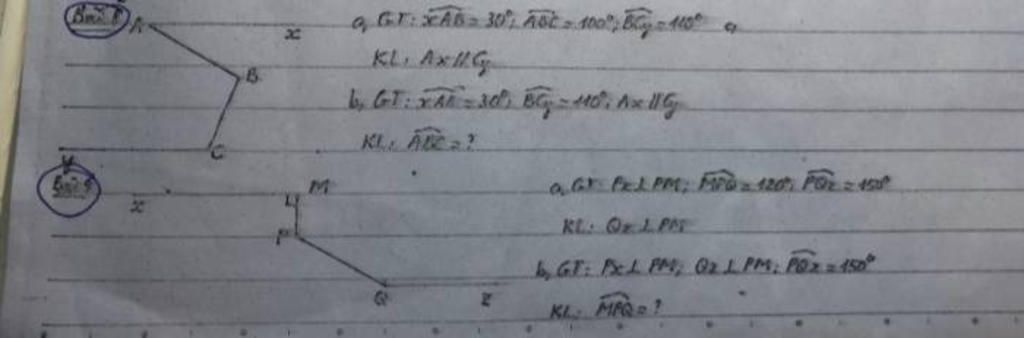 Bài 8
A
x
B
C
y
a, GT: xAB = 30°; ABC = 100°; BCy = 110° a,
KL: Ax // Cy
b, GT: xAB = 30°; BCy = 110°; Ax // Cy
KL: ABC = ?
Bài 9
x
M
P
Q
z
a, GT: Px ⊥ PM; MPQ = 120°; PQz = 150°
KL: Qz ⊥ PM
b, GT: Px ⊥ PM; Qz ⊥ PM; PQz = 150°
KL: MPQ = ?